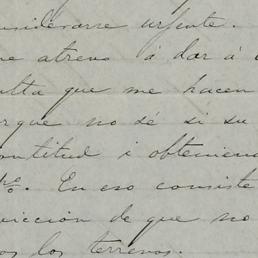 considerarse urgente.
me atrevo á dar á
sulta que me hacen
orque no sé si su
ontitud i obtenien
En eso consiste
vicción de que no
os los terrenos.